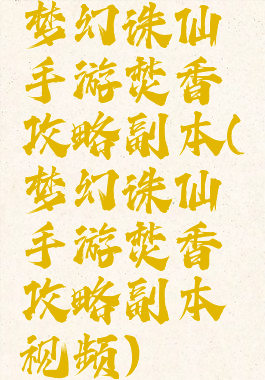 梦幻诛仙
手游焚香
攻略副本(
梦幻诛仙
手游焚香
攻略副本
视频)